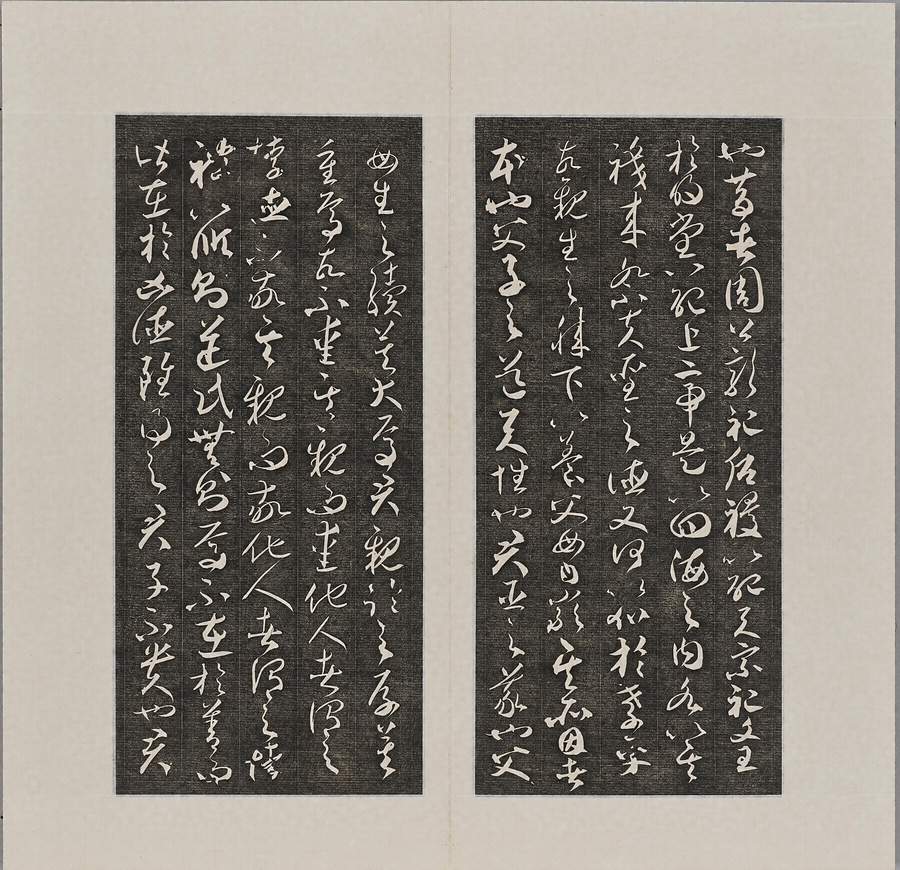 也昔者周公郊祀后稷以配天宗祀文王
於明堂以配上帝是以四海之内各以其
職来祭夫聖人之德又何以加於孝乎
故親生之膝下以養父母日嚴其所因者
本也父子之道天性也君臣之義也父
母生之續莫大焉君親臨之厚莫
重焉故不愛其親而愛他人者謂之
悖德不敬其親而敬他人者謂之悖
禮以順則逆民無則焉不在於善而
皆在於凶德雖得之君子不貴也君